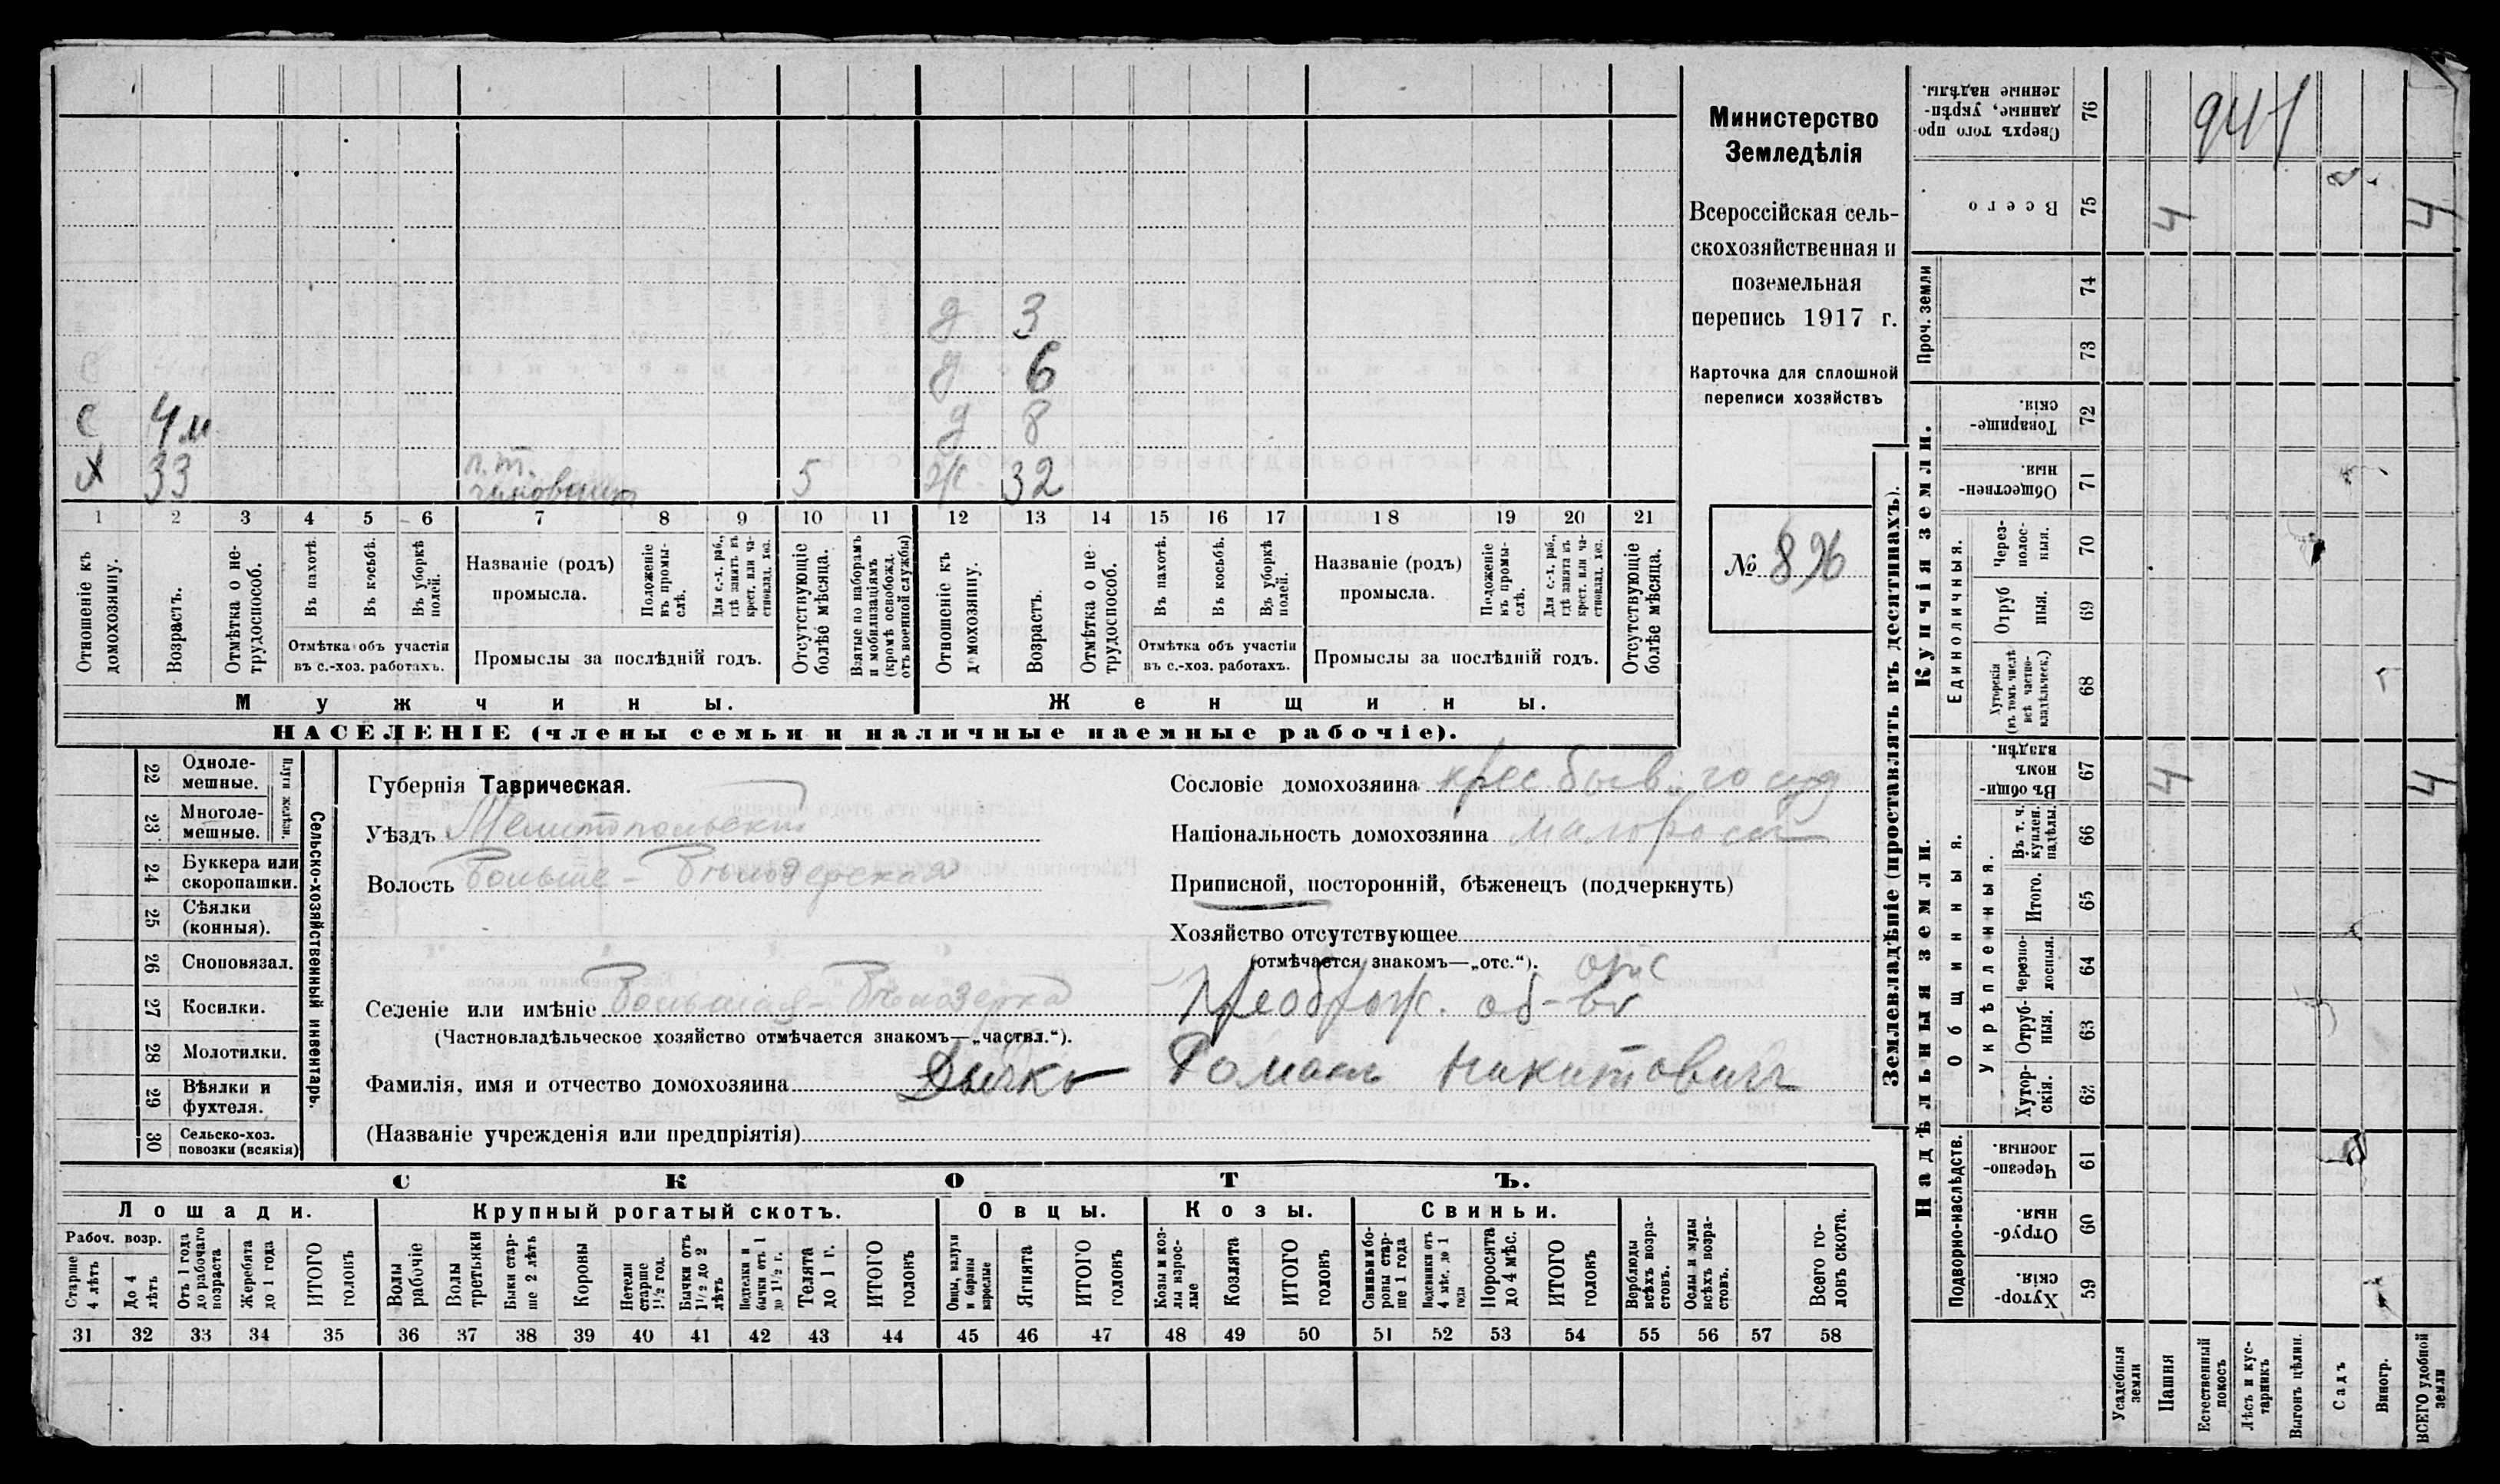 Министерство
Земледѣлія
Всероссійская сель-
скохозяйственная и
поземельная
перепись 1917 г.
Карточка для сплошной
переписи хозяйствъ
№ 896
941
д 3
д 6
с 4 м д 8
х 33 п. т. 5 ж 32
1 2 3 4 5 6 7 8 9 10 11 12 13 14 15 16 17 18 19 20 21
Отношеніе къ домохозяину.
Возрастъ.
Отмѣтка о не-трудоспособ.
Въ пахотѣ.
Въ косьбѣ.
Въ уборкѣ полей.
Отмѣтка объ участіи
въ с.-хоз. работахъ.
Названіе (родъ)
промысла.
Положеніе въ промы-слѣ.
Для с.-х. раб., гдѣ занятъ въ крест. или ча-стновлад. хоз.
Промыслы за послѣдній годъ.
Отсутствующіе болѣе мѣсяца.
Взятые по наборамъ и мобилизаціямъ (кромѣ освобожд. отъ военной службы)
Отношеніе къ домохозяину.
Возрастъ.
Отмѣтка о не-трудоспособ.
Въ пахотѣ.
Въ косьбѣ.
Въ уборкѣ полей.
Отмѣтка объ участіи
въ с.-хоз. работахъ.
Названіе (родъ)
промысла.
Положеніе въ промы-слѣ.
Для с.-х. раб., гдѣ занята въ крест. или ча-стновлад. хоз.
Промыслы за послѣдній годъ.
Отсутствующіе болѣе мѣсяца.
Мужчины. Женщины.
НАСЕЛЕНІЕ (члены семьи и наличные наемные рабочіе).
Сельско-хозяйственный инвентарь.
Плуги желѣзн.
22 Одноле-мешные.
23 Многоле-мешные.
24 Буккера или скоропашки.
25 Сѣялки (конныя).
26 Сноповязал.
27 Косилки.
28 Молотилки.
29 Вѣялки и фухтеля.
30 Сельско-хоз. повозки (всякія)
Губернія Таврическая.
Уѣздъ Мелитопольскій
Волость Больше-Бѣлозерская
Селеніе или имѣніе Большая-Бѣлозерка Преображ. об-во
(Частновладѣльческое хозяйство отмѣчается знакомъ—„частвл.“).
Фамилія, имя и отчество домохозяина Дычко Романъ Никитовичъ
(Названіе учрежденія или предпріятія)
Сословіе домохозяина крес бывш госуд
Національность домохозяина малоросъ
Приписной, посторонній, бѣженецъ (подчеркнуть)
Хозяйство отсутствующее
(отмѣчается знакомъ—„отс.“). отс
СКОТЪ.
Лошади. Крупный рогатый скотъ. Овцы. Козы. Свиньи.
Рабоч. возр.
Старше 4 лѣтъ
До 4 лѣтъ
Отъ 1 года до рабочаго возраста
Жеребята до 1 года
ИТОГО головъ
Волы рабочіе
Волы третьяки
Быки стар-ше 2 лѣтъ
Коровы
Нетели старше 1½ год.
Бычки отъ 1½ до 2 лѣтъ
Подтелки и бычки отъ 1 до 1½ г.
Телята до 1 г.
ИТОГО головъ
Овцы, валухи и бараны взрослые
Ягнята
ИТОГО головъ
Козы и коз-лы взрос-лые
Козлята
ИТОГО головъ
Свиньи и бо-ровы стар-ше 1 года
Подсвинки отъ 4 мѣс. до 1 года
Поросята до 4 мѣс.
ИТОГО головъ
Верблюды всѣхъ возра-стовъ.
Ослы и мулы всѣхъ возра-стовъ.
Всего го-ловъ скота.
31 32 33 34 35 36 37 38 39 40 41 42 43 44 45 46 47 48 49 50 51 52 53 54 55 56 57 58
Землевладѣніе (проставлять въ десятинахъ).
Надѣльныя земли. Купчія земли. Проч. земли
Подворно-наслѣдств.
Общинныя.
Укрѣпленныя.
Единоличныя.
59 Хутор-скія.
60 Отруб-ныя.
61 Черезпо-лосныя.
62 Хутор-скія.
63 Отруб-ныя.
64 Черезпо-лосныя.
65 Итого.
66 Въ т. ч. куплен. надѣлы.
67 Въ общин-номъ владѣн. 4 4
68 Хуторскія (въ томъ числѣ всѣ частно-владѣльческ.)
69 Отруб ныя.
70 Через-полос-ныя.
71 Обществен-ныя.
72 Товарище-скія.
73
74
75 Всего 4 4
76 Сверхъ того про-данные, укрѣп-ленные надѣлы.
Усадебныя земли
Пашня
Естественный покосъ
Лѣсъ и кус-тарникъ
Выгонъ цѣлин.
Садъ
Виногр.
ВСЕГО удобной земли